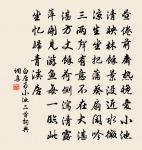 晝倦前齋熱晚愛小池
清映林餘景沒近水微
涼生坐把蒲葵扇閑吟
三兩聲有意不在大湛
湛方丈餘荷側瀉清露
萍開見游魚每一臨此
坐憶歸青溪居
白居易小池二首詞典
網書